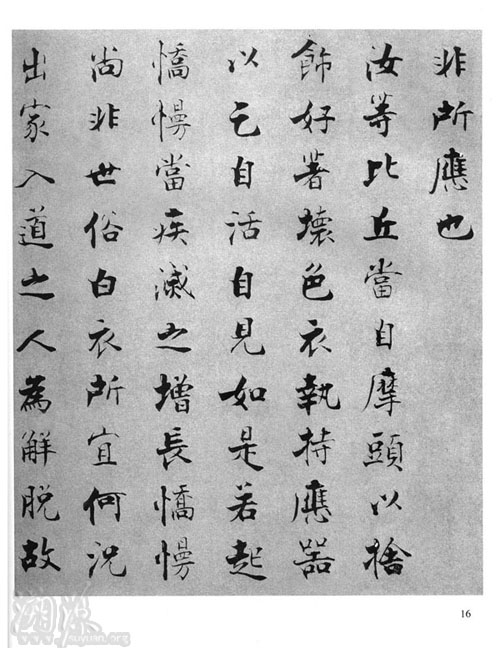 非所應也
汝等比丘當自摩頭以捨
飾好著壞色衣執持應器
以乞自活自見如是若起
憍慢當疾滅之增長憍慢
尚非世俗白衣所宜何況
出家入道之人為解脫故
16
溯源
suyuan.org